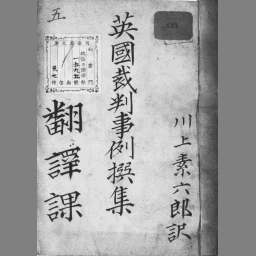 英國裁判事例撰集
川上素六郎訳
五
翻譯課